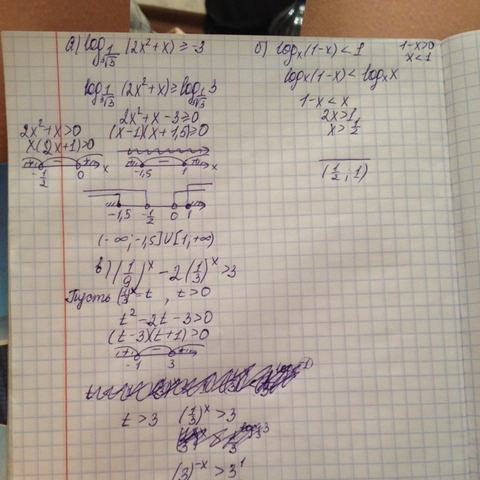 а) log 1/∛3 (2x²+x) ≥ -3
log 1/∛3 (2x²+x) ≥ log 1/∛3 3
2x²+x-3≥0
(x-1)(x+1,5)≥0
2x²+x>0
x(2x+1)>0
+ - + x
-1/2 0
+ - + x
-1,5 1
-1,5 -1/2 0 1
(-∞; -1,5]∪[1; +∞)
б) logₓ(1-x)<1
1-x>0
x<1
logₓ(1-x)<logₓx
1-x<x
2x>1
x>1/2
(1/2; 1)
в) (1/9)ˣ - 2(1/3)ˣ >3
Пусть (1/3)ˣ=t, t>0
t²-2t-3>0
(t-3)(t+1)>0
+ - +
-1 3
t>3 (1/3)ˣ>3
(3)⁻ˣ>3¹